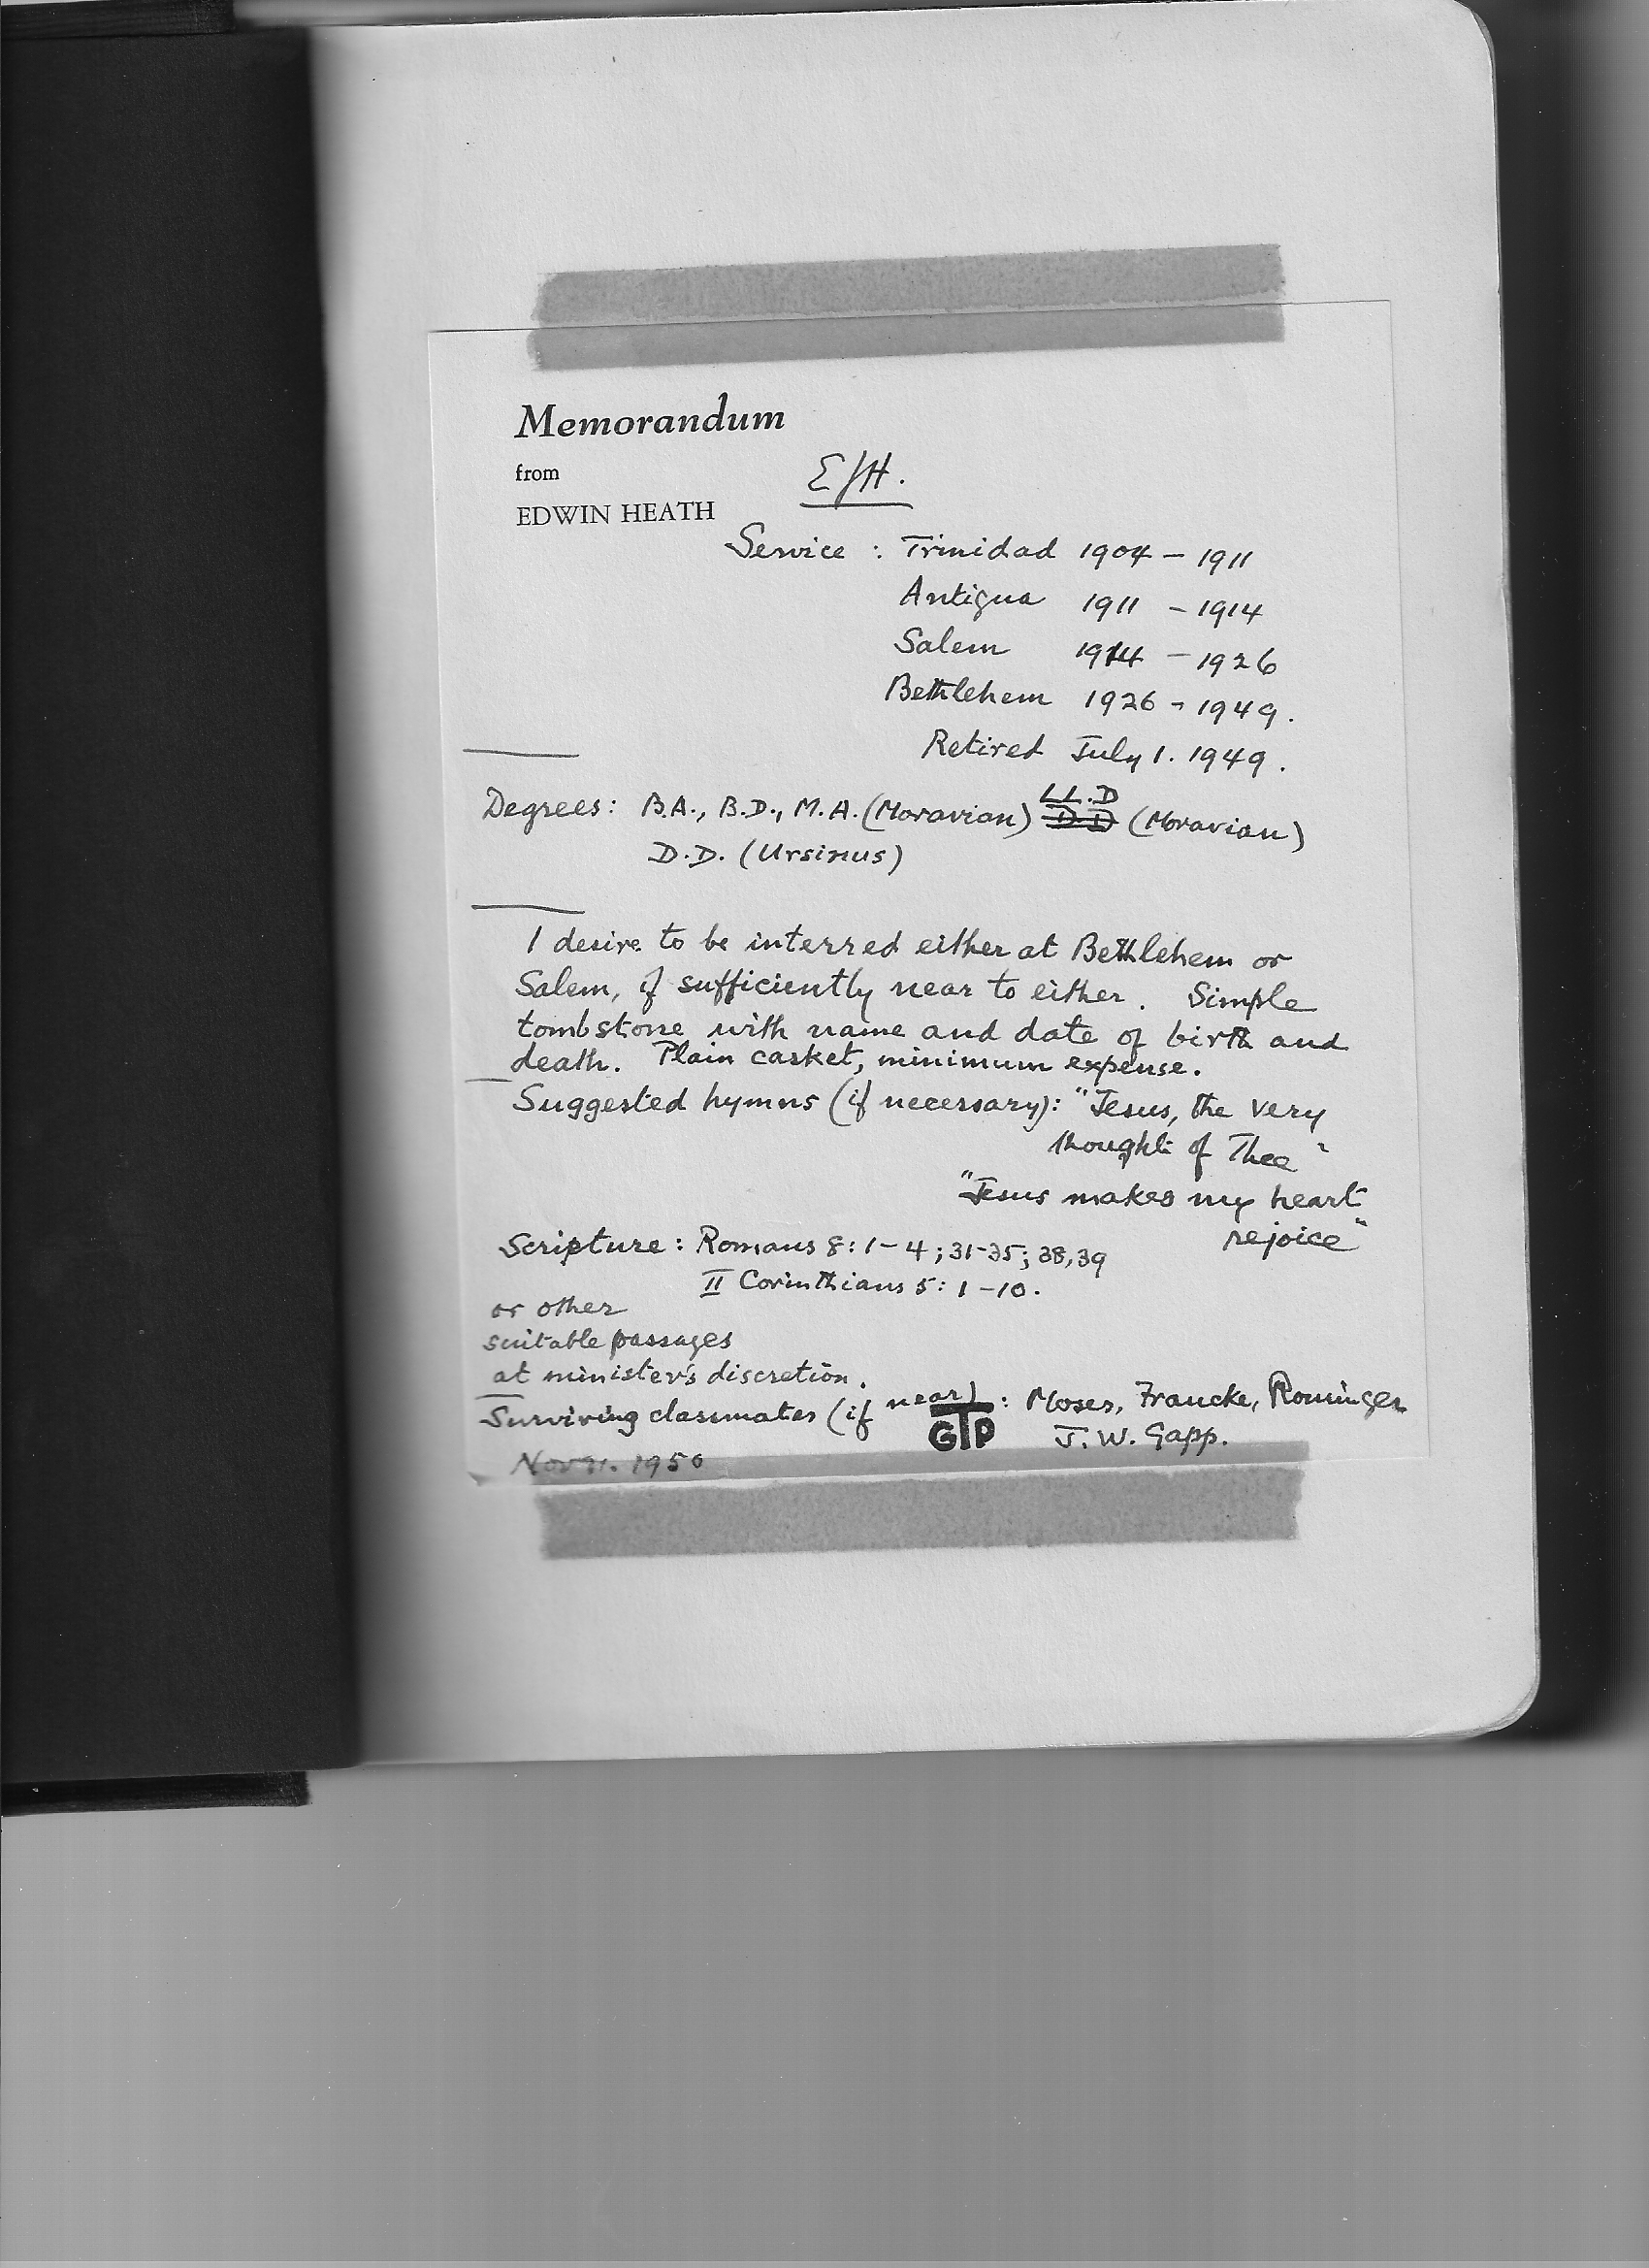 Memorandum
from
EDWIN HEATH
E/H.
Service : Trinidad 1904 - 1911
Antigua 1911 - 1914
Salem 1914 - 1926
Bethlehem 1926 - 1949.
Retired July 1. 1949.
LL.D
Degrees: B.A., B.D., M.A. (Moravian) D.D (Moravian)
D.D. (Ursinus)
I desire to be interred either at Bethlehem or
Salem, if sufficiently near to either. Simple
tombstone with name and date of birth and
death. Plain casket, minimum expense.
Suggested hymns (if necessary): "Jesus, the very
thought of Thee"
"Jesus makes my heart
rejoice"
Scripture : Romans 8: 1-4; 31-35; 38,39
II Corinthians 5: 1-10.
or other
suitable passages
at minister's discretion.
Surviving classmates (if near) : Moses, Francke, Rominger
GTP
J. W. Gapp.
1950